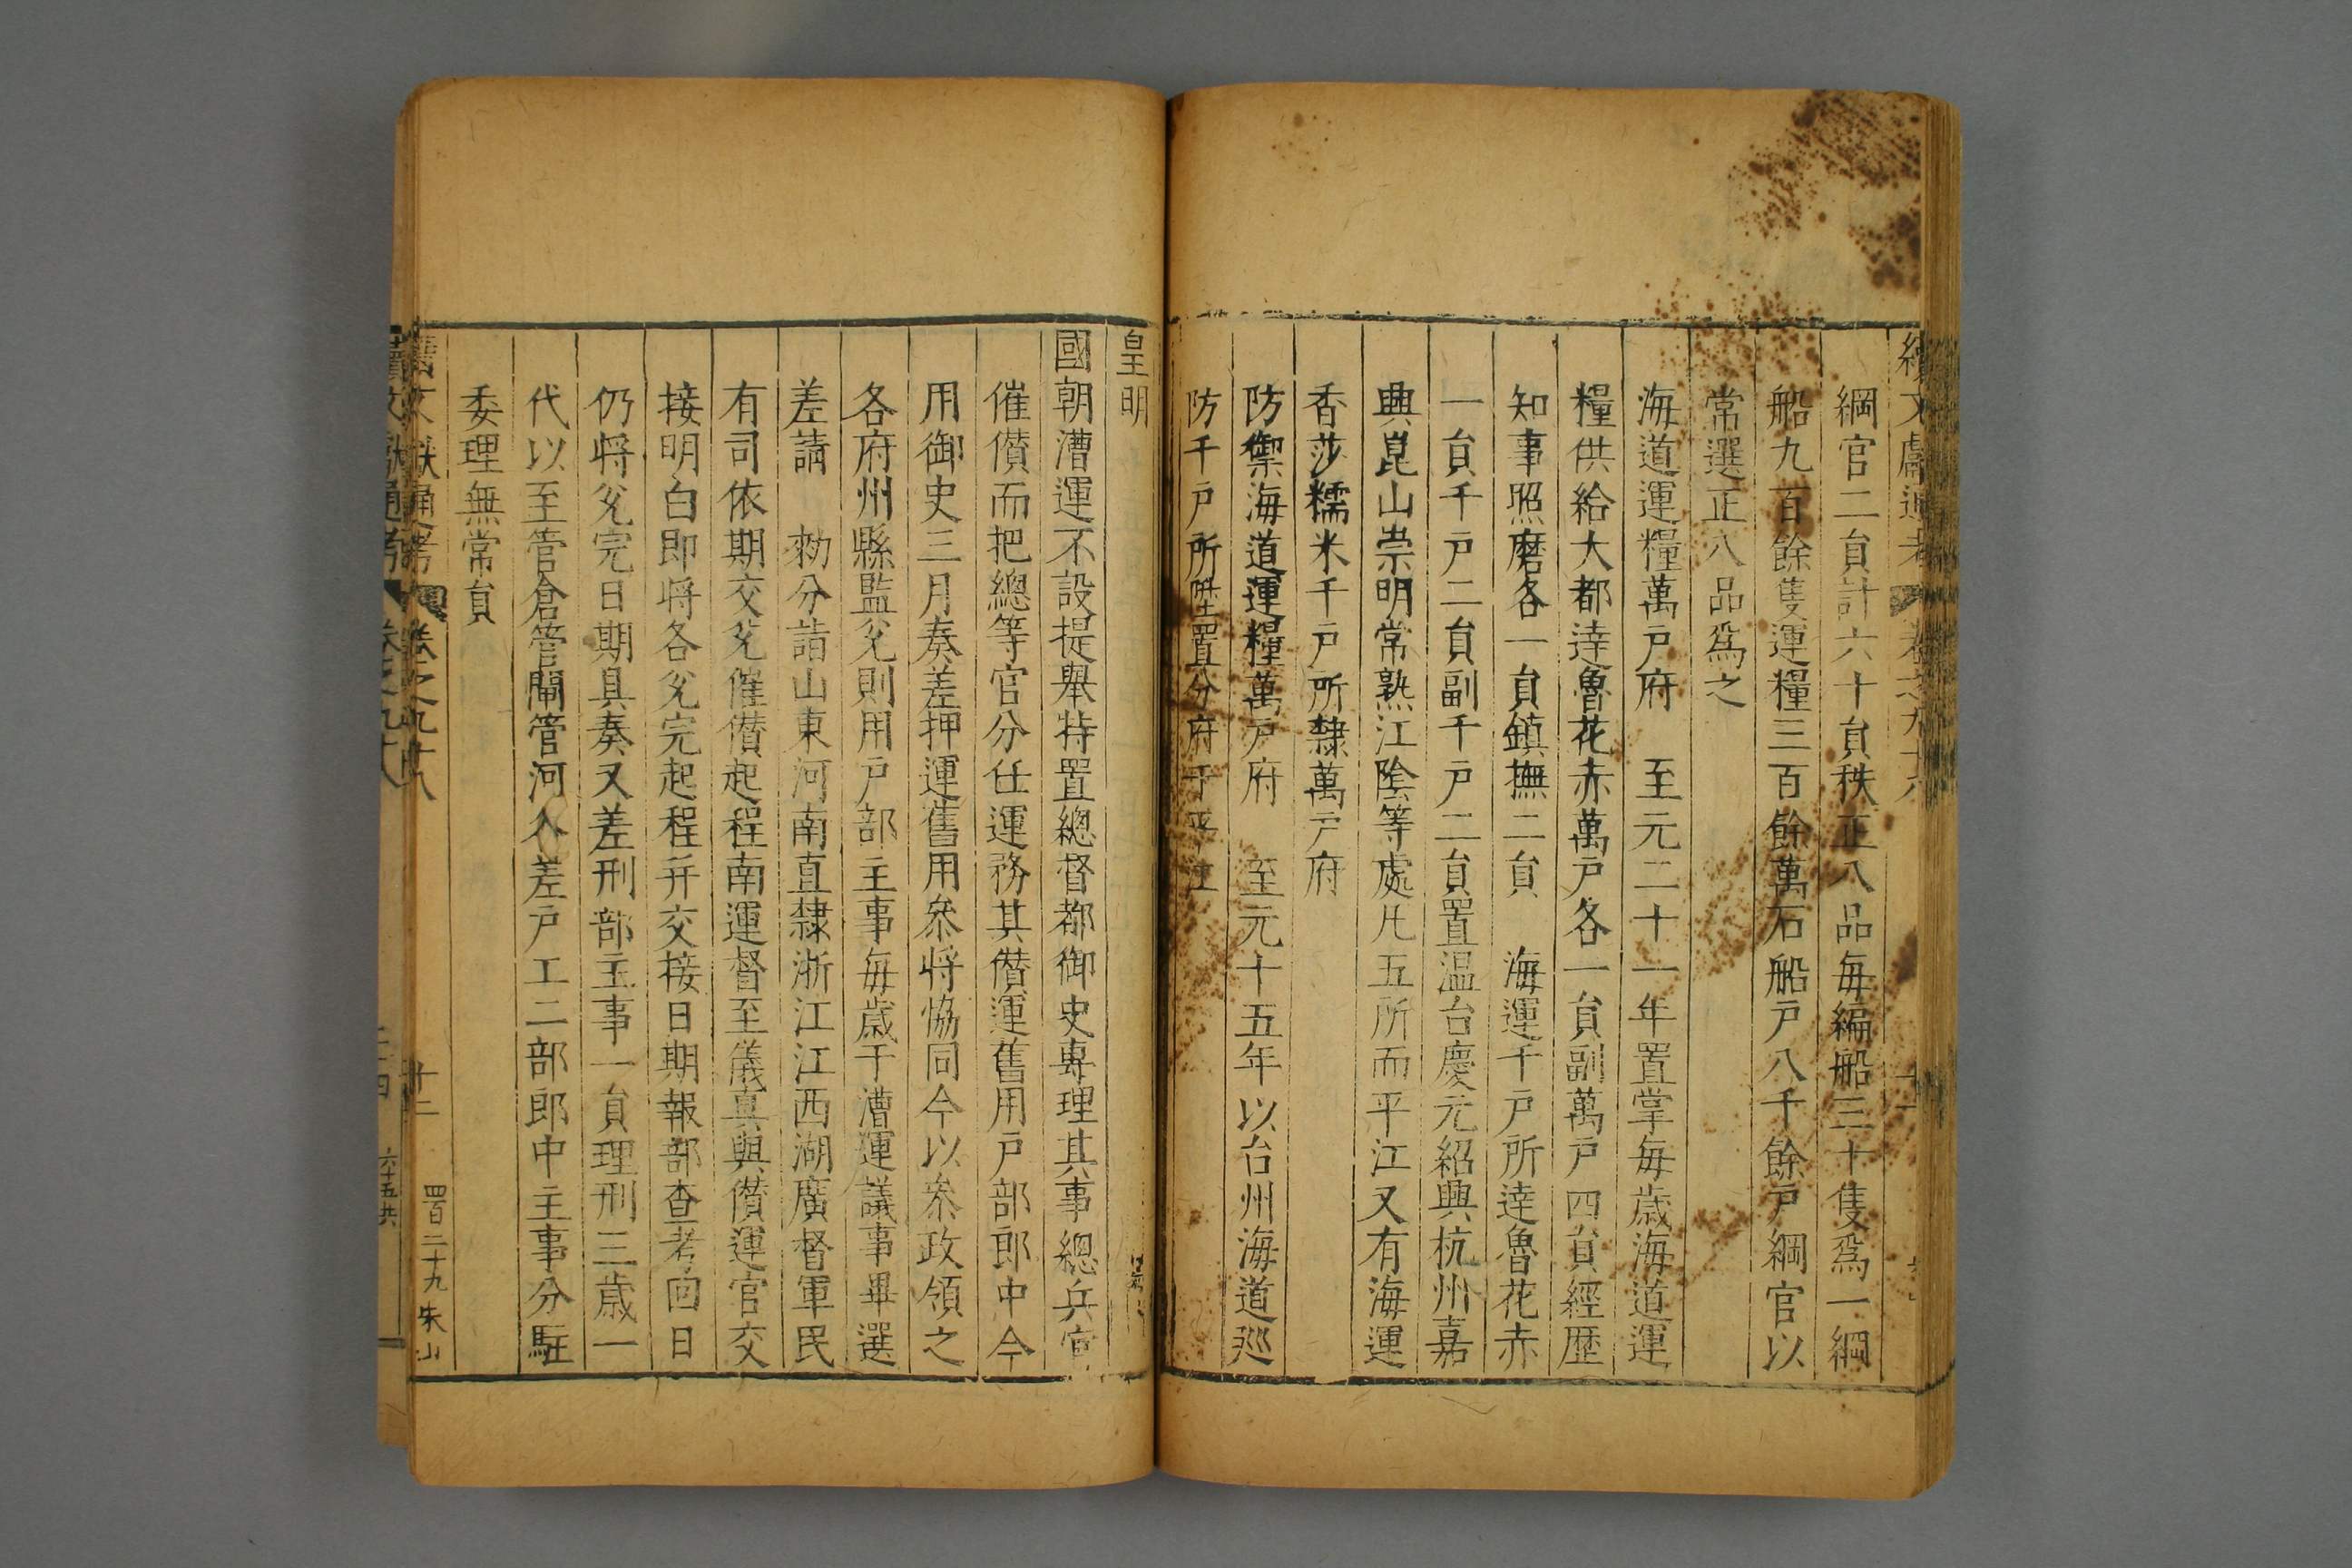 續文獻通考 卷之九十八
綱官二員計六十員秩正八品每編船三十隻爲一綱
船九百餘隻運糧三百餘萬石船戶八千餘戶綱官以
常選正八品爲之
海道運糧萬戶府　至元二十一年置掌每歲海道運
糧供給大都逹魯花赤萬戶各一員副萬戶四員經歷
知事照磨各一員鎮撫二員　海運千戶所逹魯花赤
一員千戶二員副千戶二員置温台慶元紹興杭州嘉
興崑山崇明常熟江隂等處凡五所而平江又有海運
香莎糯米千戶所隸萬戶府
防禦海道運糧萬戶府　至元十五年以台州海道廵
防千戶所陞置分府于平江
皇明
國朝漕運不設提舉特置總督都御史專理其事總兵官
催儹而把總等官分任運務其儹運舊用戶部郎中今
用御史三月奏差押運舊用叅將恊同今以叅政領之
各府州縣監兊則用戶部主事每歲于漕運議事畢選
差請　勑分詣山東河南直隸浙江江西湖廣督軍民
有司依期交兊催儹起程南運督至儀真與儹運官交
接明白即將各兊完起程并交接日期報部查考回日
仍將兊完日期具奏又差刑部主事一員理刑三歲一
代以至管倉管閘管河各差戶工二部郎中主事分駐
委理無常員
續文獻通考 卷之九十八 十二 四百二十九 朱山
續文獻通考 卷之九十八